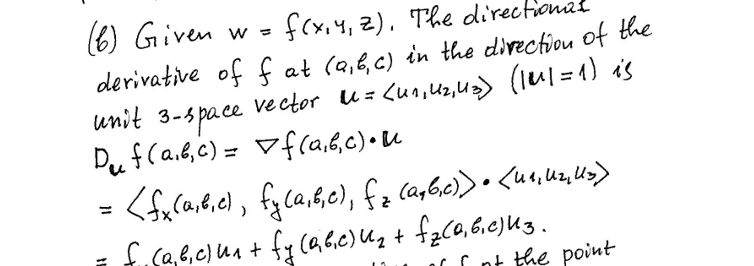 (b) Given w = f(x,y,z). The directional
derivative of f at (a,b,c) in the direction of the
unit 3-space vector u = <u₁,u₂,u₃> (|u|=1) is
Duf(a,b,c) = ∇f(a,b,c)•u
= <fx(a,b,c), fy(a,b,c), fz(a,b,c)>•<u₁,u₂,u₃>
= fx(a,b,c)u₁ + fy(a,b,c)u₂ + fz(a,b,c)u₃.
the point